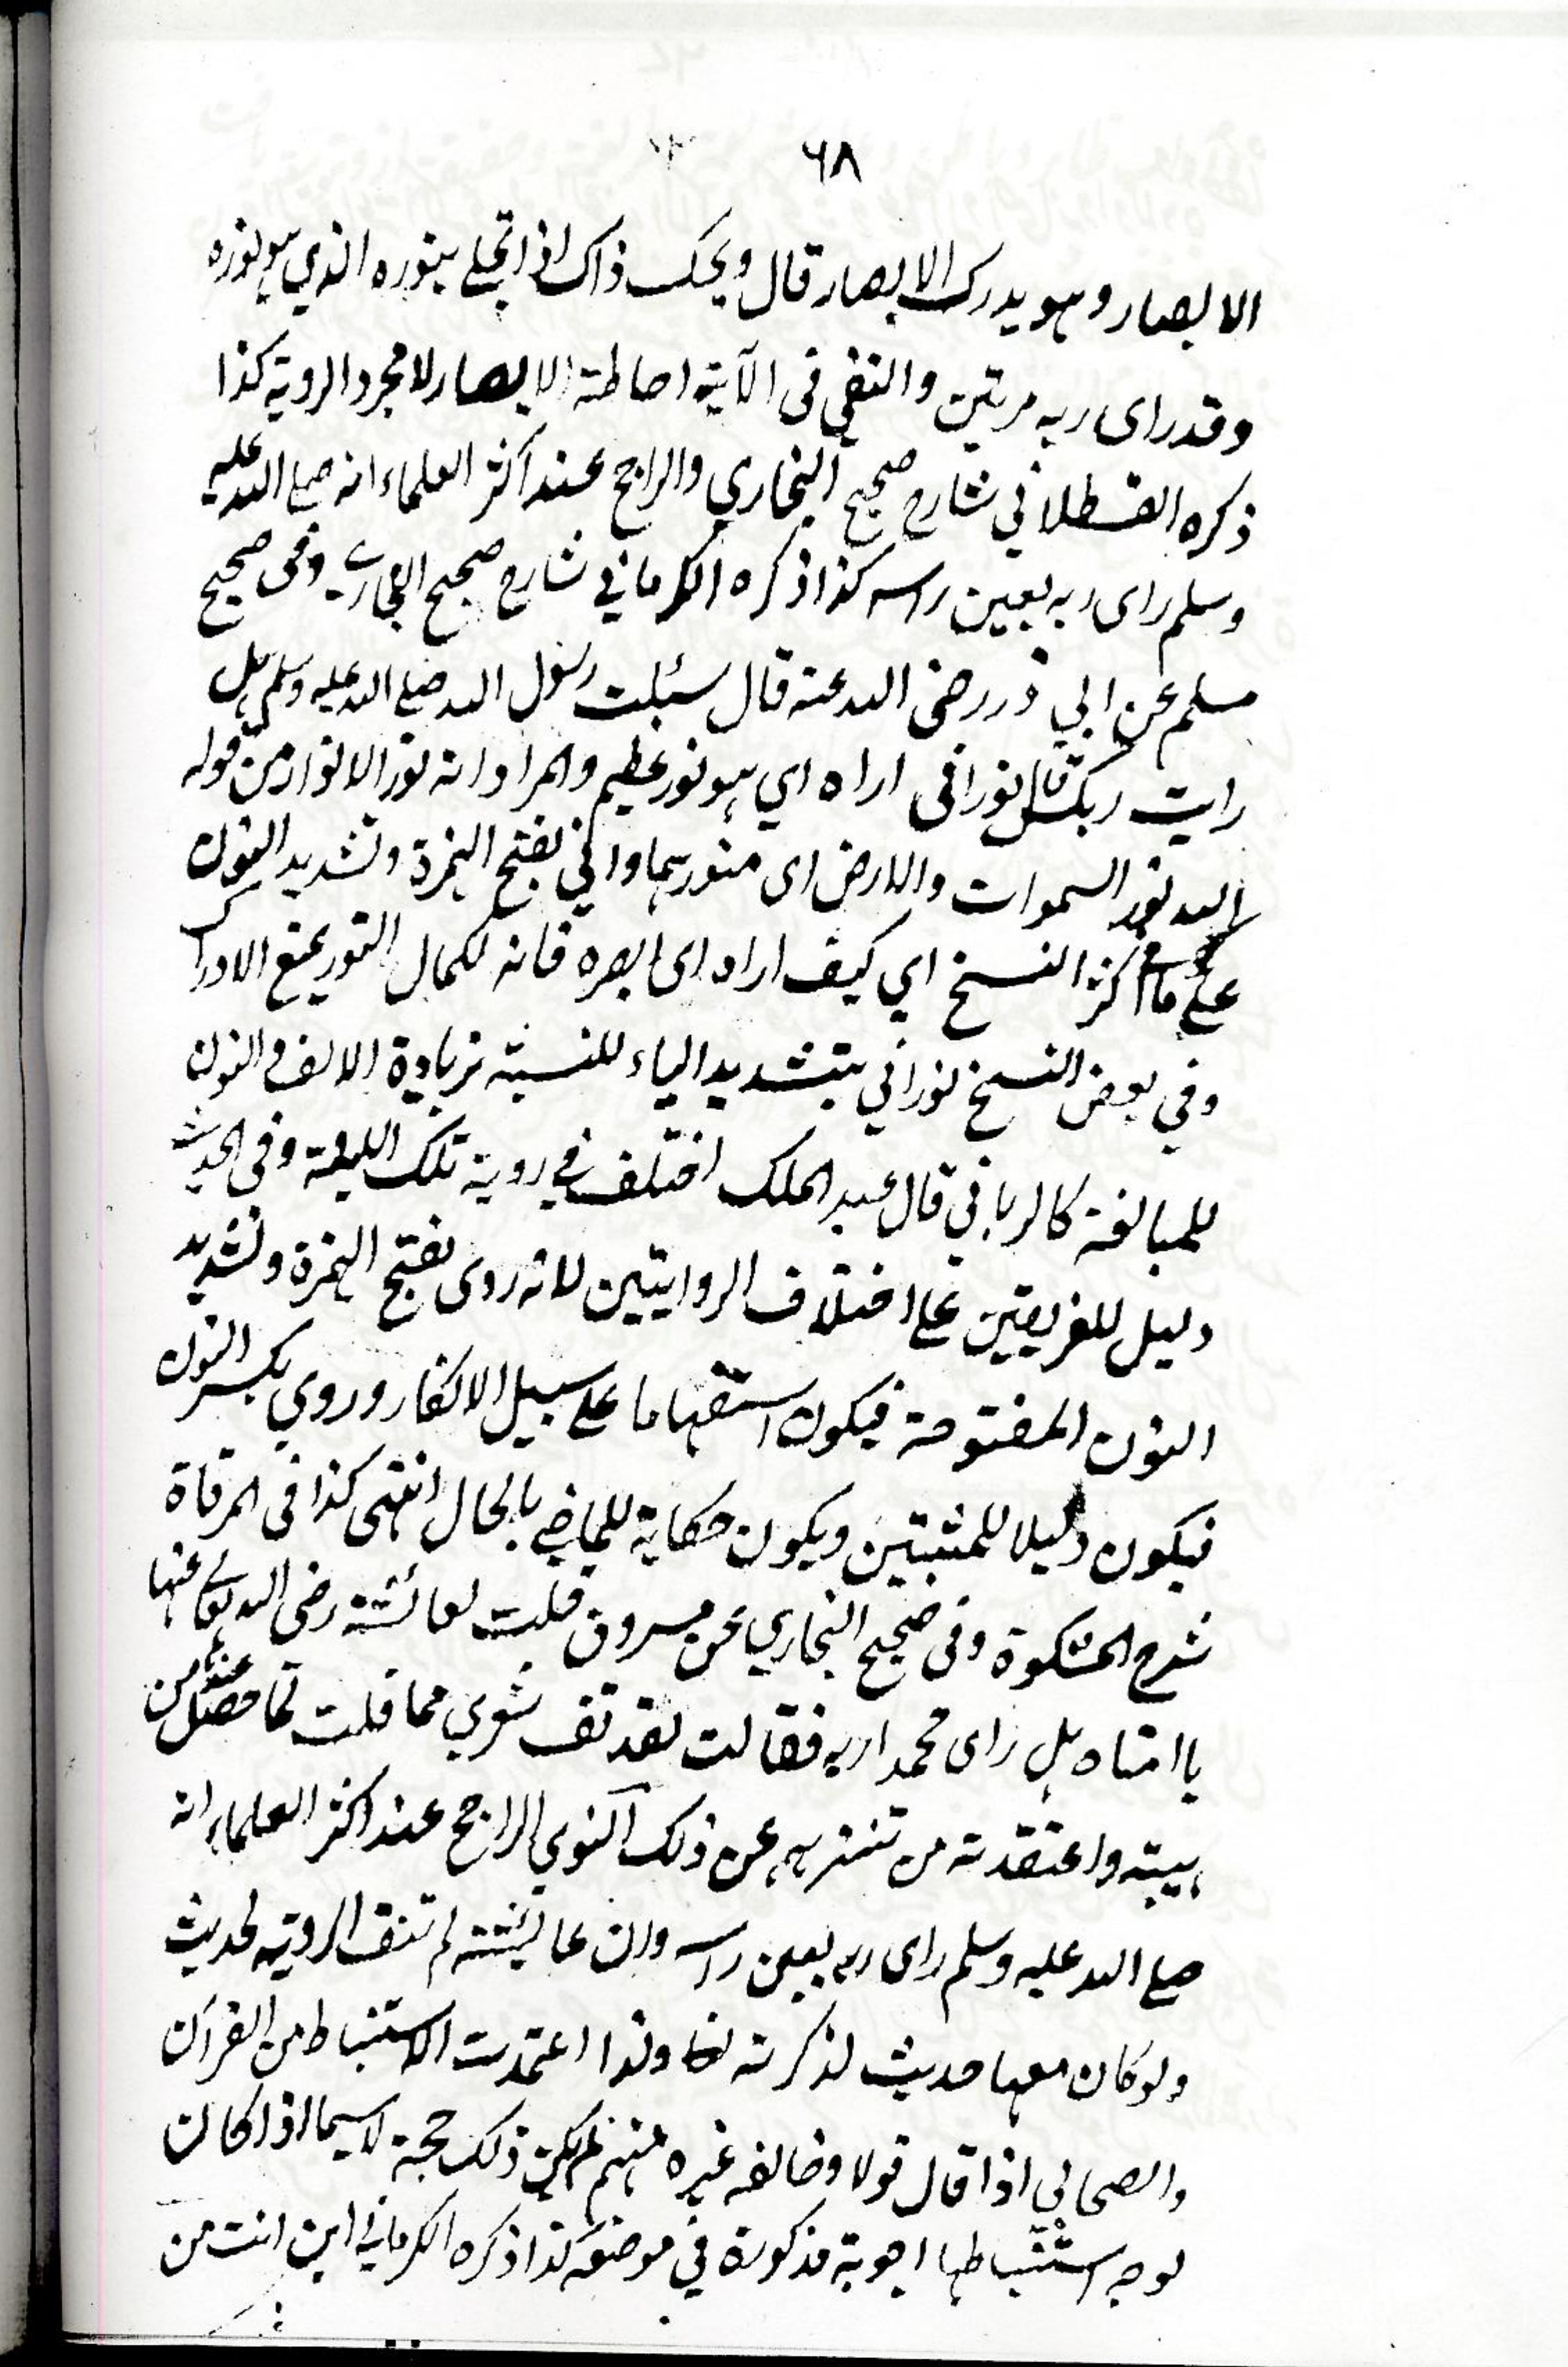 ٦٨
الابصار وهو يدرك الابصار قال ويحك ذاك اذا تجلى بنوره الذي هو نوره
وقد راى ربه مرتين والنفي فى الآية احاطة الابصار لا مجرد الروية كذا
ذكره القسطلاني شارح صحيح البخاري والراجح عند اكثر العلماء انه صلى الله عليه
وسلم راى ربه بعين راسه كذا ذكره الكرماني شارح صحيح البخاري وفى صحيح
مسلم عن ابي ذر رضى الله عنه قال سئلت رسول الله صلى الله عليه وسلم هل
رايت ربك قال نور انى اراه اي هو نور عظيم والمراد انه نور الانوار من قوله
الله نور السموات والارض اى منورهما وانى بفتح الهمزة وتشديد النون
على ما فى اكثر النسخ اي كيف اراه اى ابصره فانه لكمال النور يمنع الادراك
وفي بعض النسخ نوراني بتشديد الياء للنسبة بزيادة الالف والنون
للمبالغة كالرباني قال عبد الملك اختلف في روية تلك الليلة وفى الحديث
دليل للفريقين على اختلاف الروايتين لانه روى بفتح الهمزة وتشديد
النون المفتوحة فيكون استفهاما على سبيل الانكار وروي بكسر النون
فيكون دليلا للمثبتين ويكون حكاية للماضي بالحال انتهى كذا فى المرقاة
شرح المشكوة وفى صحيح البخاري عن مسروق قلت لعائشة رضى الله تعالى عنها
يا امتاه هل راى محمد ربه فقالت لقد قف شعري مما قلت لما حصل عندها من
هيبته واعتقدته من تنزيهه عن ذلك النوي الراجح عند اكثر العلماء انه
صلى الله عليه وسلم راى ربه بعين راسه وان عائشة لم تنف الروية لحديث
ولو كان معها حديث لذكرته ولذا اعتمدت الاستنباط من القرآن
والصحابي اذا قال قولا وخالفه غيره منهم لم يكن ذلك حجة لا سيما اذا كان
لوجه استنباطها اجوبة مذكورة في موضعه كذا ذكره الكرماني اين انت من